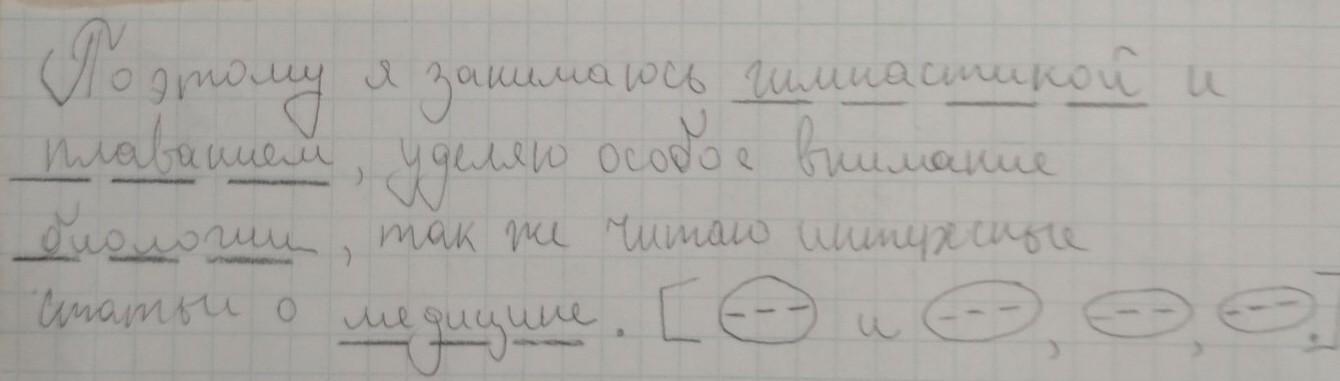 Поэтому я занимаюсь гимнастикой и
плаванием, уделяю особое внимание
биологии, так же читаю
статьи о медицине. [(---) и (---), (---), (---).]